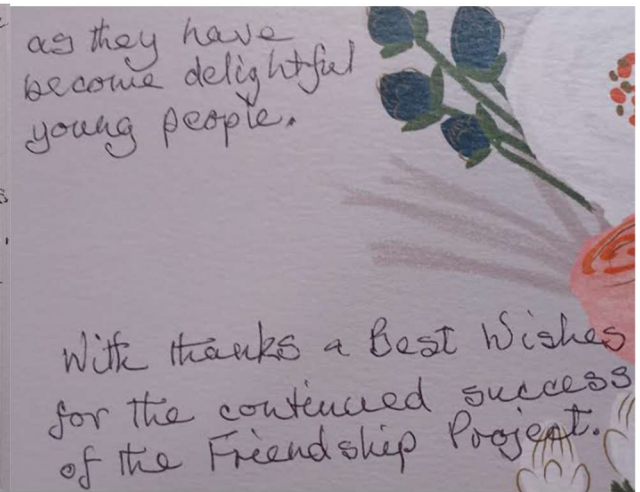 as they have
become delightful
young people.
With thanks a Best Wishes
for the continued success
of the Friendship Project.